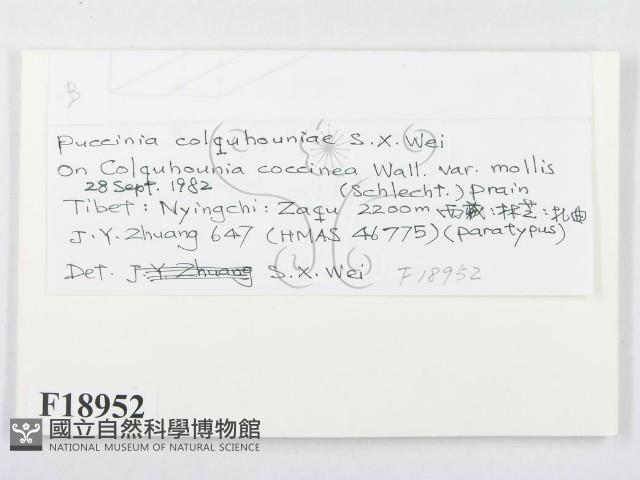 B
Puccinia colquhouniae S.X. Wei
On Colquhounia coccinea Wall. var. mollis
28 Sept. 1982 (Schlecht.) Prain
Tibet: Nyingchi: Zaqu 2200m 西藏:林芝:扎曲
J.Y. Zhuang 647 (HMAS 46775) (paratypus)
Det. J.Y. Zhuang S.X. Wei F18952
F18952
國立自然科學博物館
NATIONAL MUSEUM OF NATURAL SCIENCE